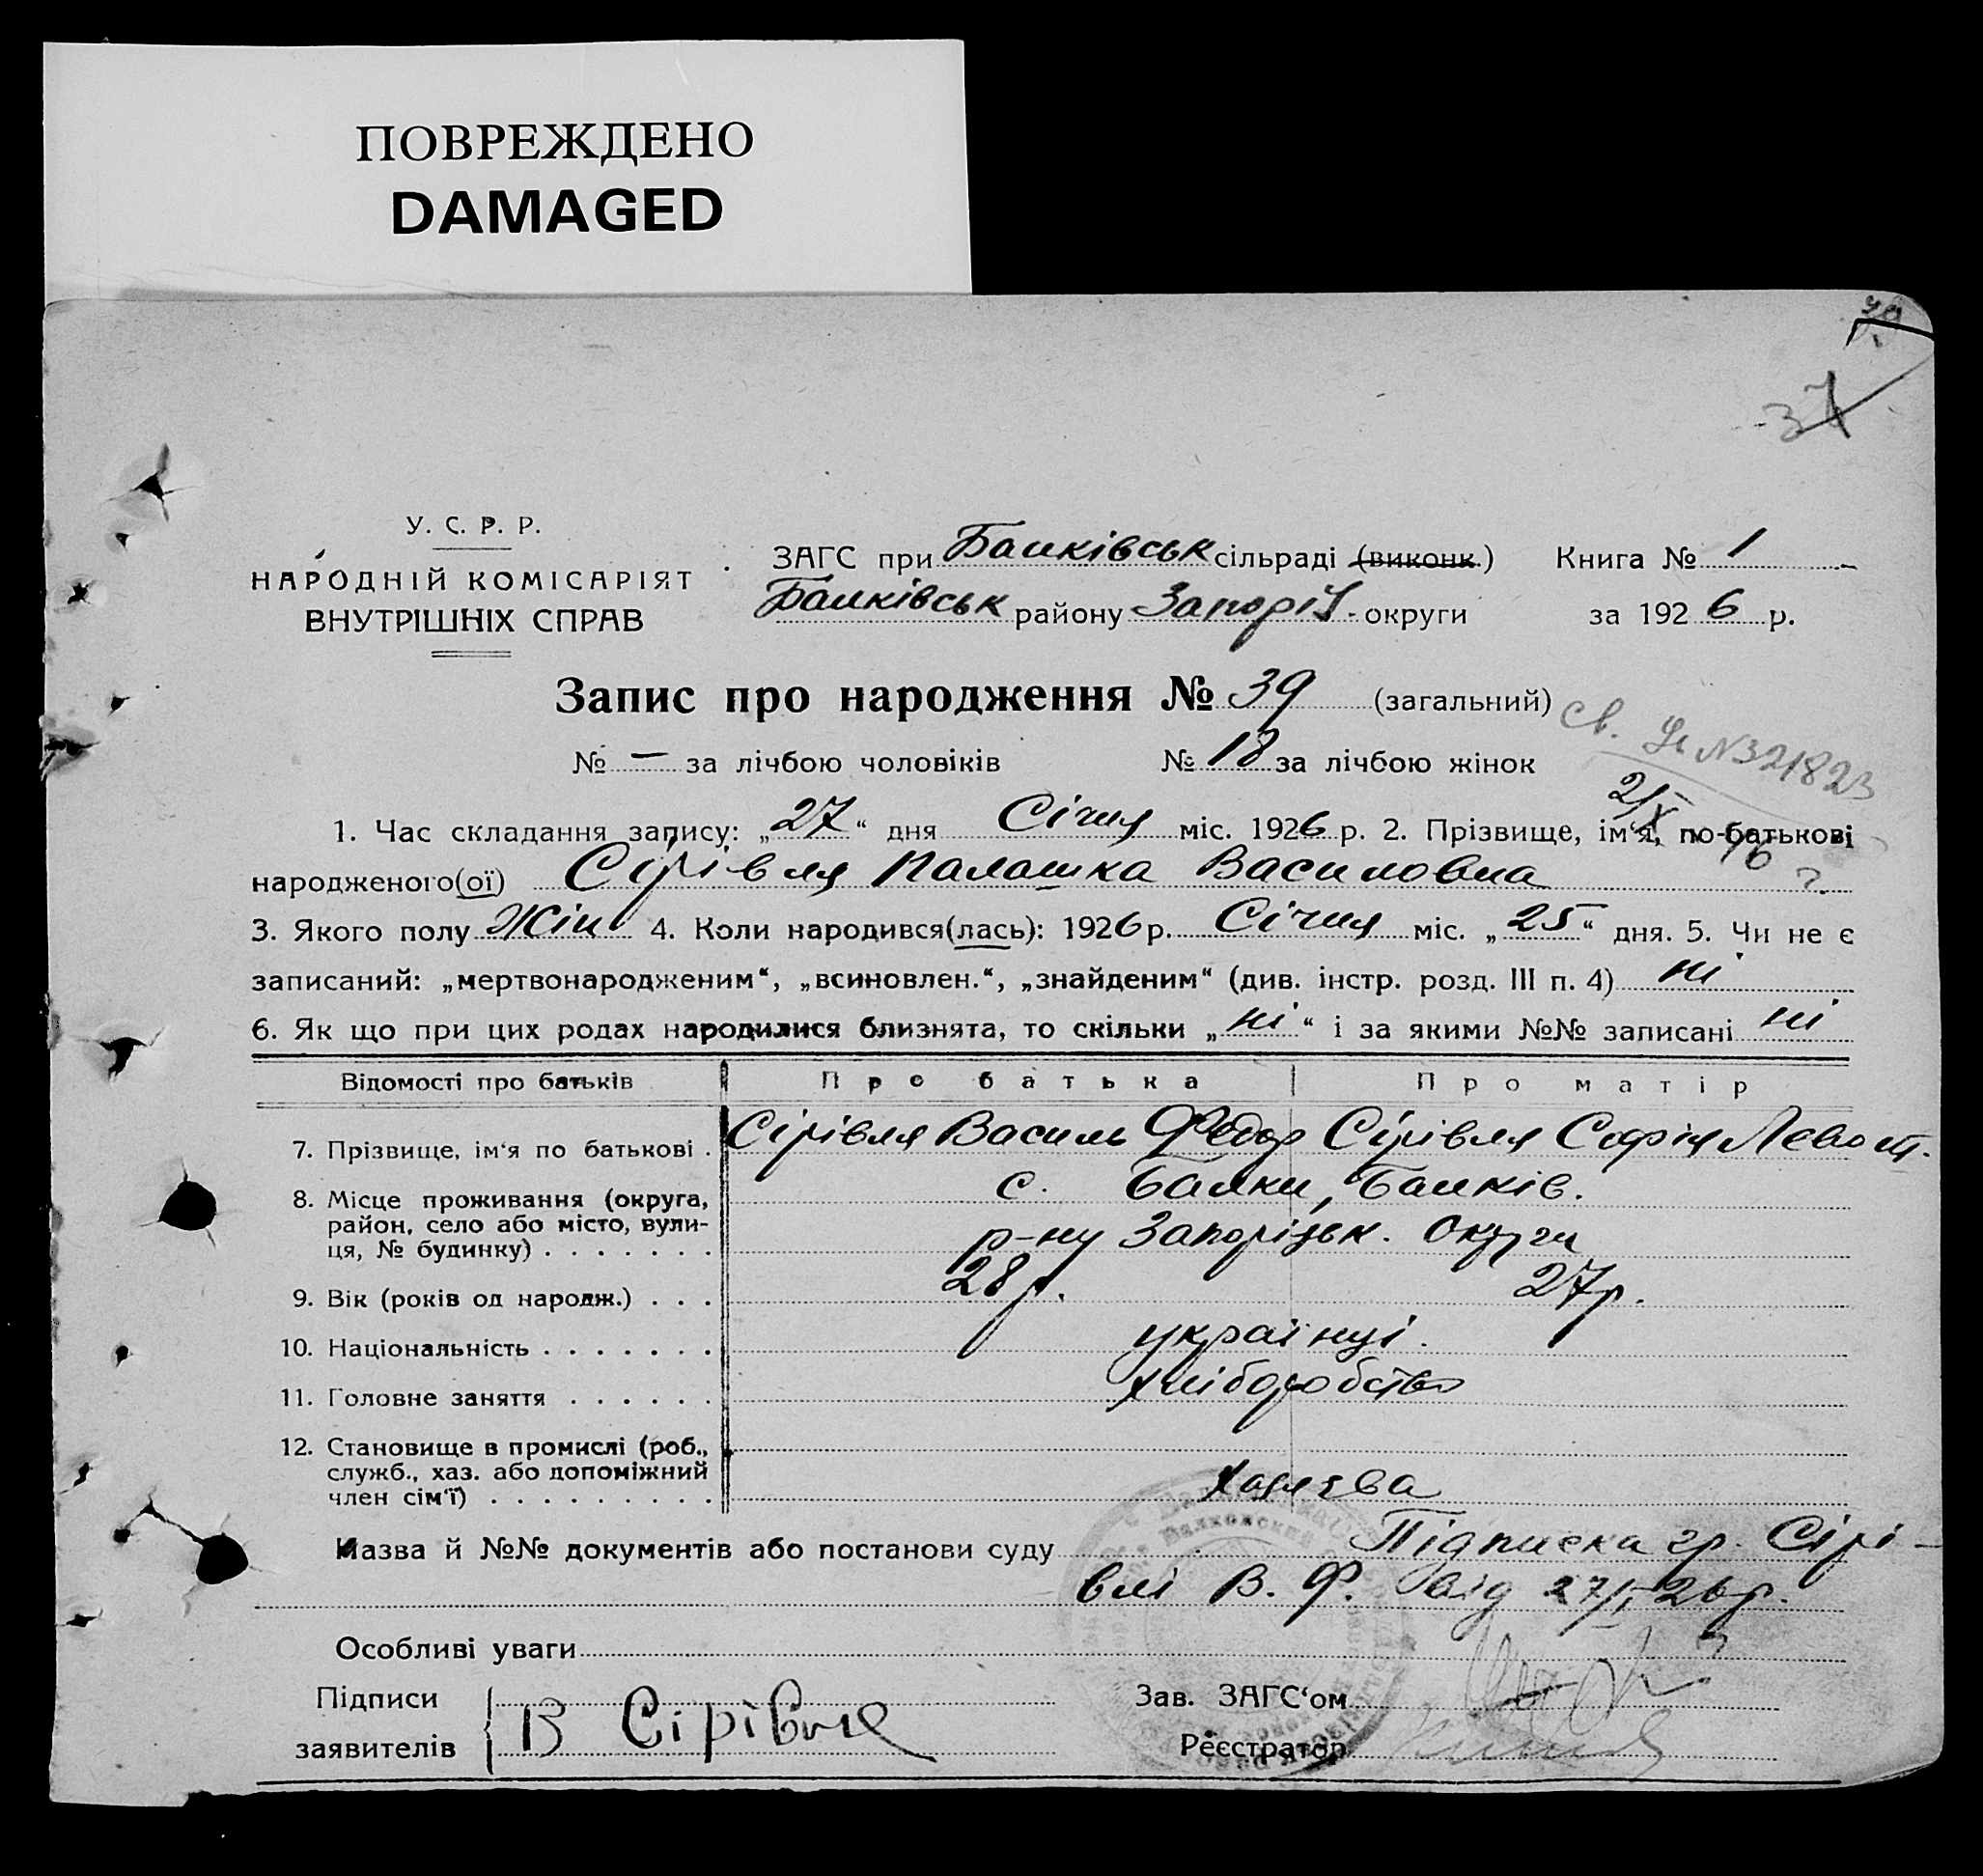 ПОВРЕЖДЕНО
DAMAGED
37
У. С. Р. Р.
НАРОДНІЙ КОМІСАРІЯТ
ВНУТРІШНІХ СПРАВ
ЗАГС при Балківськ сільраді (виконк.) Книга № 1
Балківськ району Запоріз. округи за 1926 р.
Запис про народження № 39 (загальний)
№ — за лічбою чоловіків № 18 за лічбою жінок
св. № 321823
2/X 46 г.
1. Час складання запису: „27“ дня Січня міс. 1926 р. 2. Прізвище, ім'я, по-батькові
народженого(ої) Сірівля Палашка Василовна
3. Якого полу Жін 4. Коли народився(лась): 1926 р. Січня міс. „25“ дня. 5. Чи не є
записаний: „мертвонародженим“, „всиновлен.“, „знайденим“ (див. інстр. розд. III п. 4) ні
6. Як що при цих родах народилися близнята, то скільки „ні“ і за якими №№ записані ні
Відомості про батьків Про батька Про матір
7. Прізвище, ім'я по батькові . Сірівля Василь Федор Сірівля Софія Левонт.
8. Місце проживання (округа, с. Балки, Балків.
район, село або місто, вули-
ця, № будинку) . . . . . . . р-ну Запорізьк. Округи
9. Вік (років од народж.) . . . 28 р. 27 р.
10. Національність . . . . . . . українці.
11. Головне заняття . . . . . . хліборобство
12. Становище в промислі (роб.,
служб., хаз. або допоміжний
член сім'ї) . . . . . . . . . Хазяєва
Назва й №№ документів або постанови суду Підписка гр. Сірі-
влі В. Ф. від 27/I 26 р.
Особливі уваги
Підписи Зав. ЗАГС'ом
заявителів В Сірівля Реєстратор